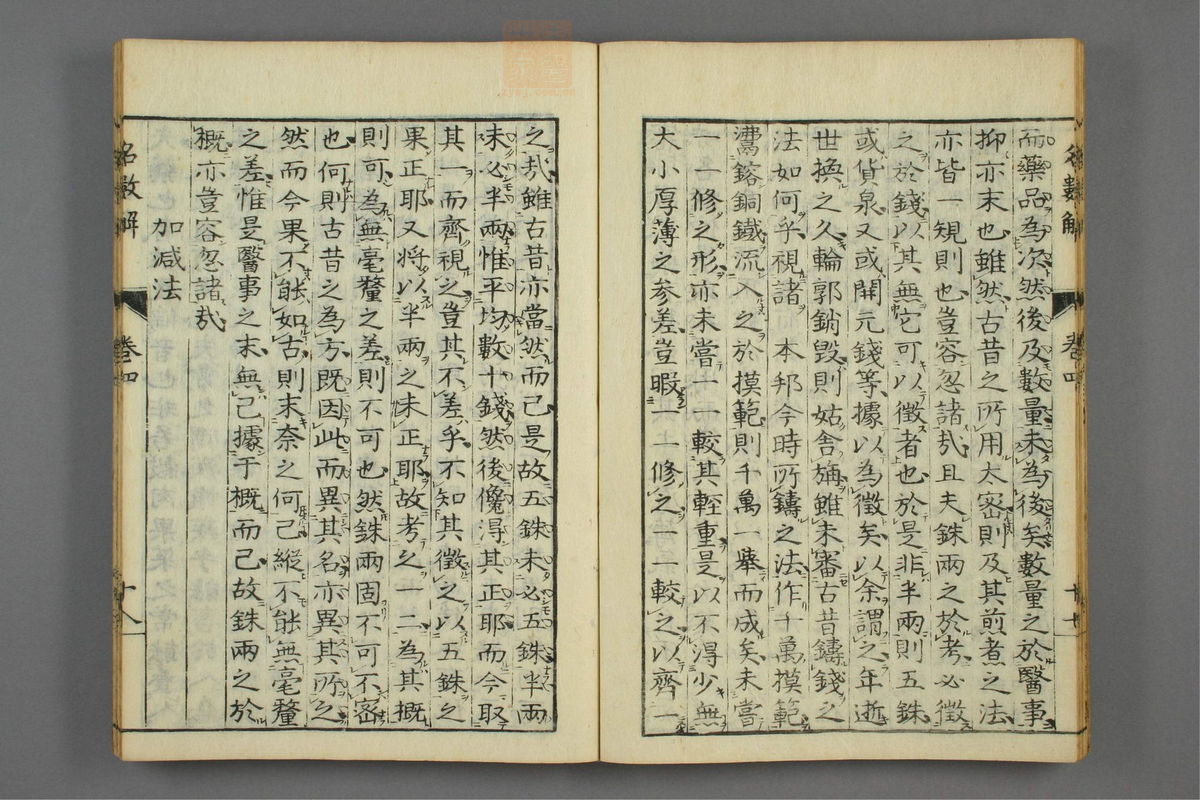 而藥品為次然後及數量未為後矣數量之於醫事
抑亦末也雖然古昔之所用太密則及其煎煮之法
亦皆一規則也豈容忽諸哉且夫銖兩之於考必徵
之於錢以其無它可以徵者也於是非半兩則五銖
或貨泉又或開元錢等據以為徵矣以余謂之年逝
世換之久輪郭銷毀則姑舍旃雖未審古昔鑄錢之
法如何乎視諸 本邦今時所鑄之法作千萬摸範
鎔銅鐵流入之於摸範則千萬一舉而成矣未嘗
一一修之形亦未嘗一一較其輕重是以不得少無
大小厚薄之參差豈暇一一修之一一較之以齊一
之哉雖古昔亦當然而已是故五銖未必五銖半兩
未必半兩惟平均數十錢然後儳得其正耶而今取
其一而齊視之豈其不差乎不知其徵之以五銖之
果正耶又將以半兩之未正耶故考之一二為其概
則可為無毫釐之差則不可也然銖兩固不可不密
也何則古昔之為方既因此而異其名亦異其所之
然而今果不能如古則末奈之何已縱不能無毫釐
之差惟是醫事之末無已據于概而已故銖兩之於
概亦豈容忽諸哉
加減法
名數解
卷四
卷四
十七
十八